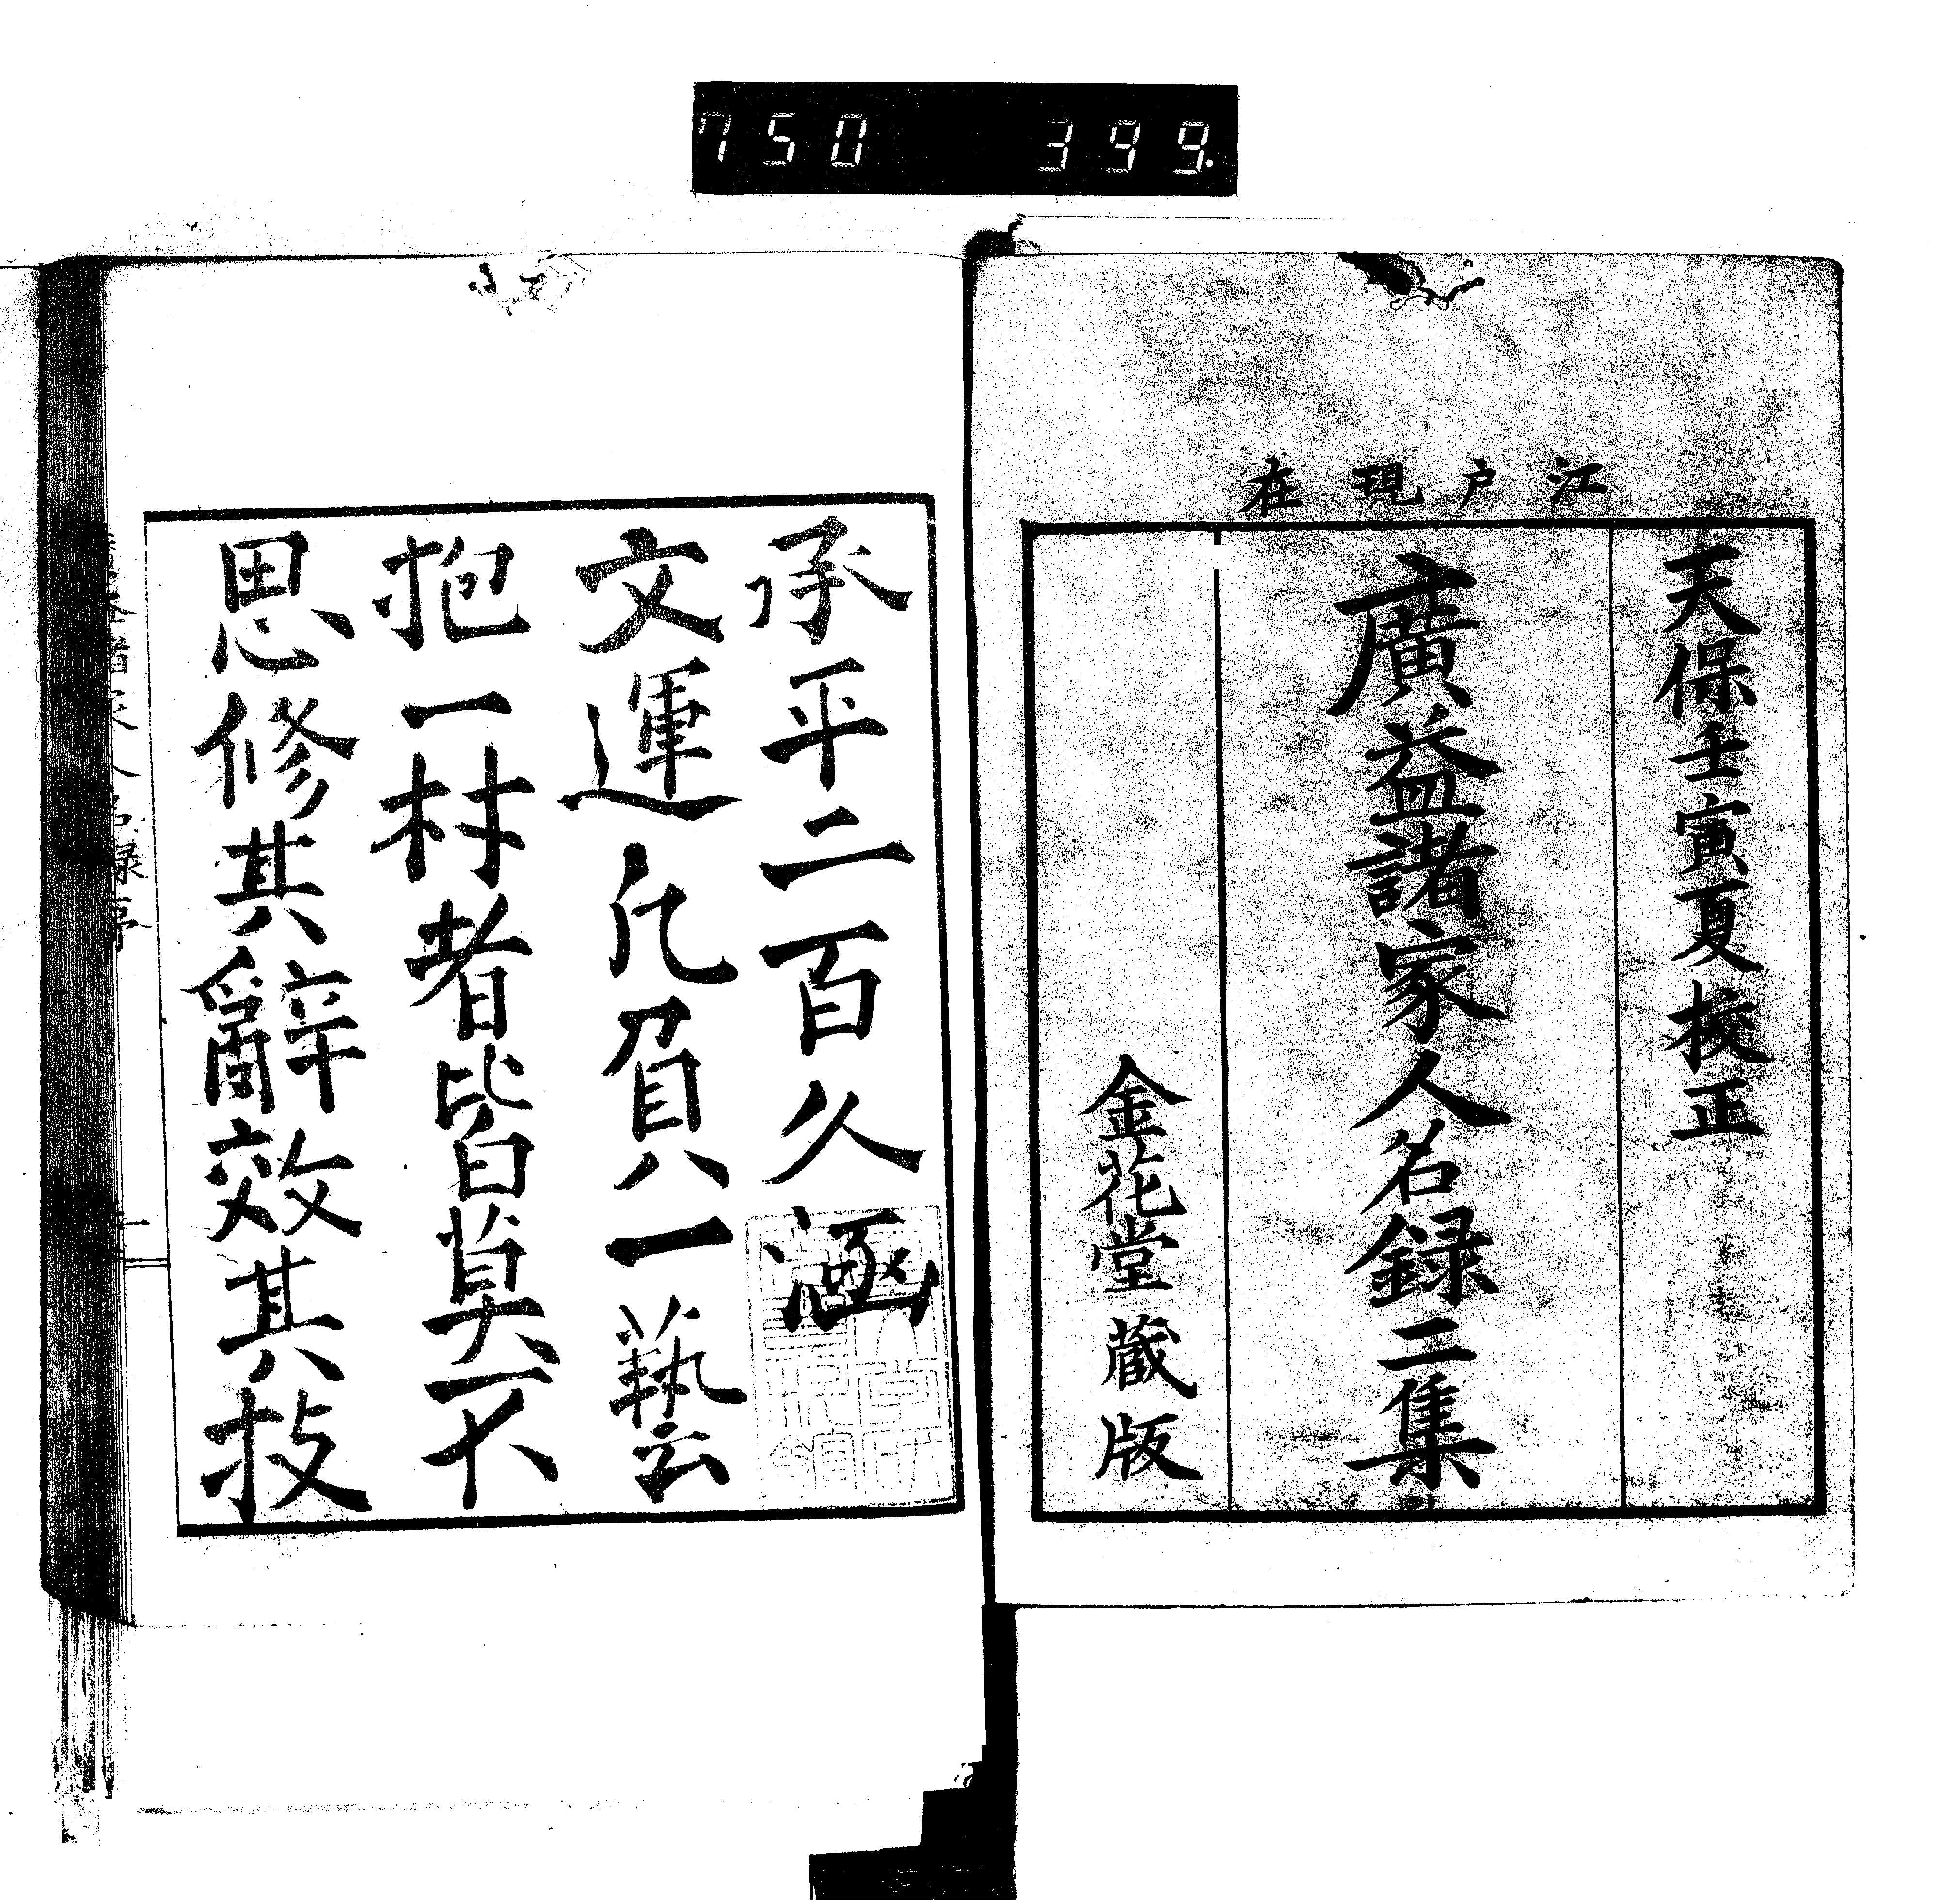 750 399.
江戸現在
天保壬寅夏校正
廣益諸家人名録二集
金花堂蔵版
承平二百久涵
文運凡負一藝
抱一材者皆莫不
思修其辭效其技